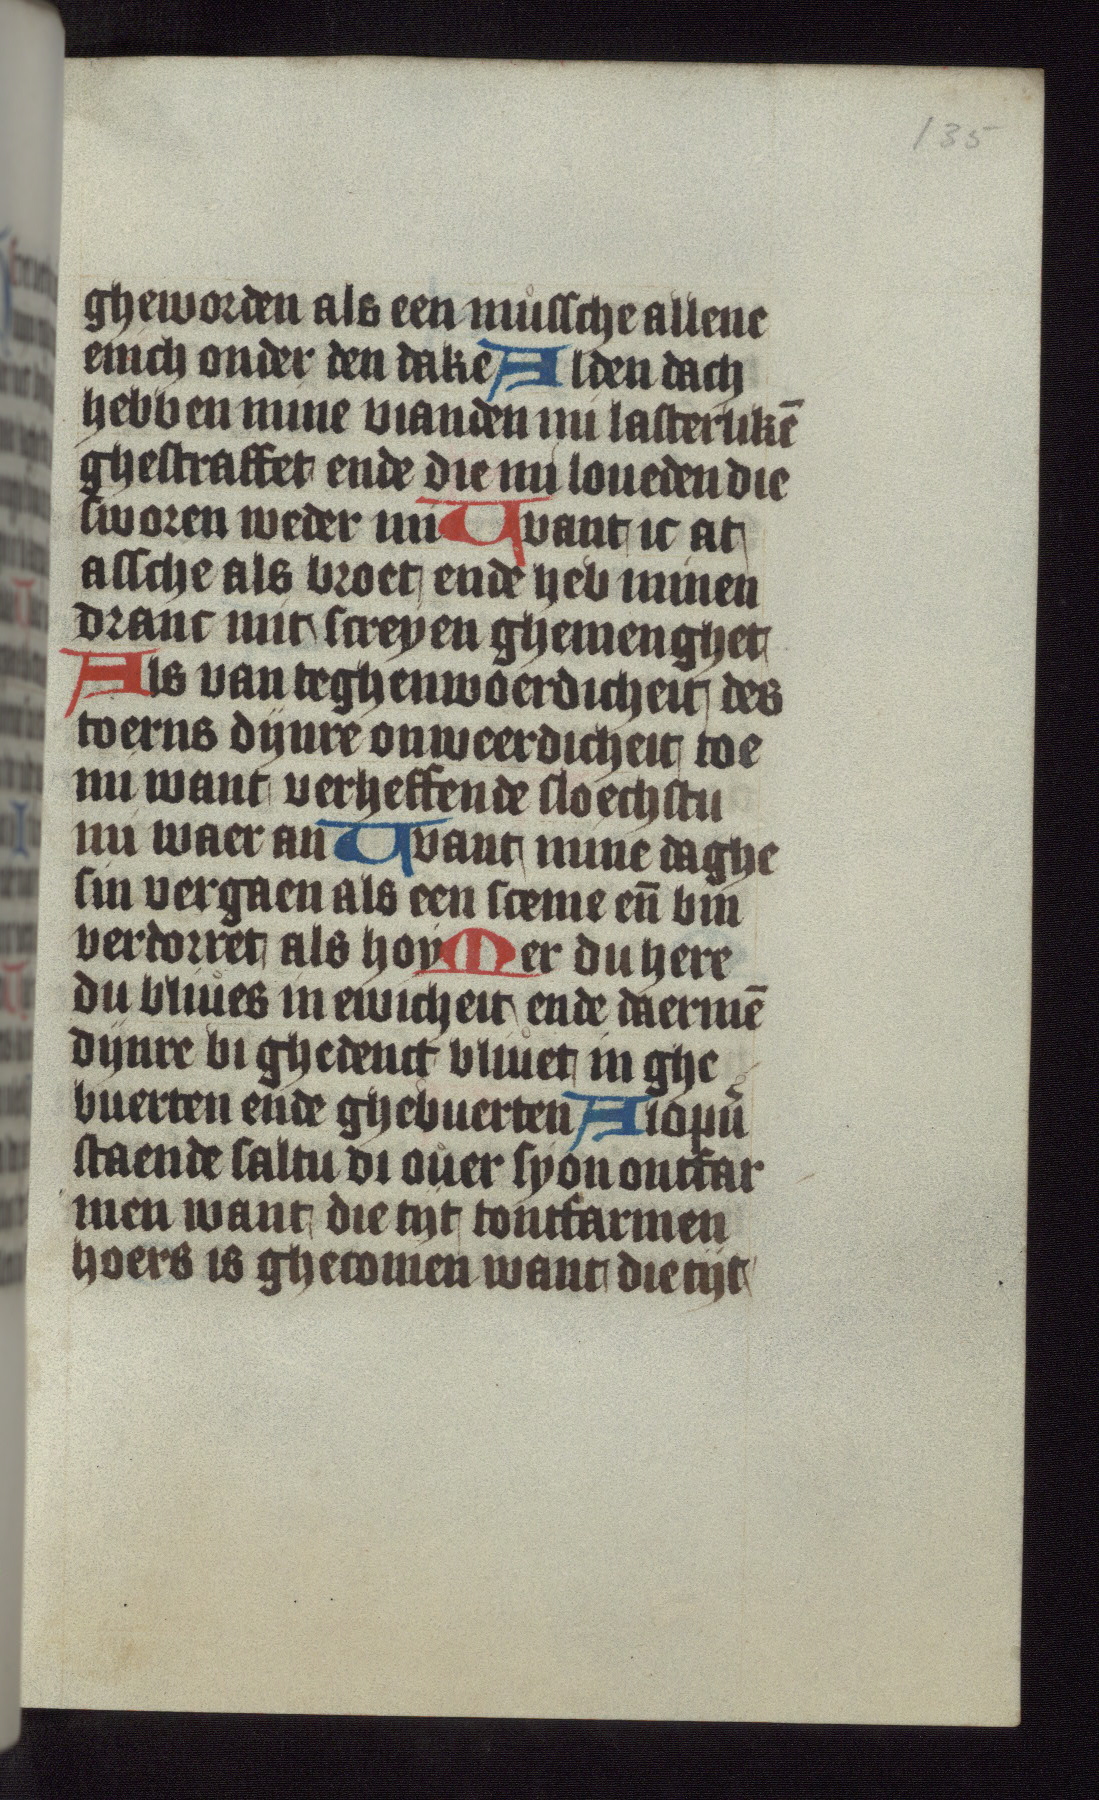 135
gheworden als een mussche allene
enich onder den dake Alden dach
hebben mine vianden mi lasterlikē
ghestraffet ende die mi loueden die
sworen weder mi Want ic at
assche als broet ende heb minen
dranc mit screyen ghemenghet
Als van teghenwoerdicheit des
toerns dijnre onweerdicheit toe
mi want verheffende sloechstu
mi waer an Want mine daghe
sin vergaen als een sceme eñ bin
verdorret als hoy Mer du here
du bliues in ewicheit ende daermē
dijnre bi ghedenct bliuet in ghe
buerten ende ghebuerten Als op
staende saltu di ouer syon ontfar
men want die tijt tontfarmen
hoers is ghecomen want die tijt